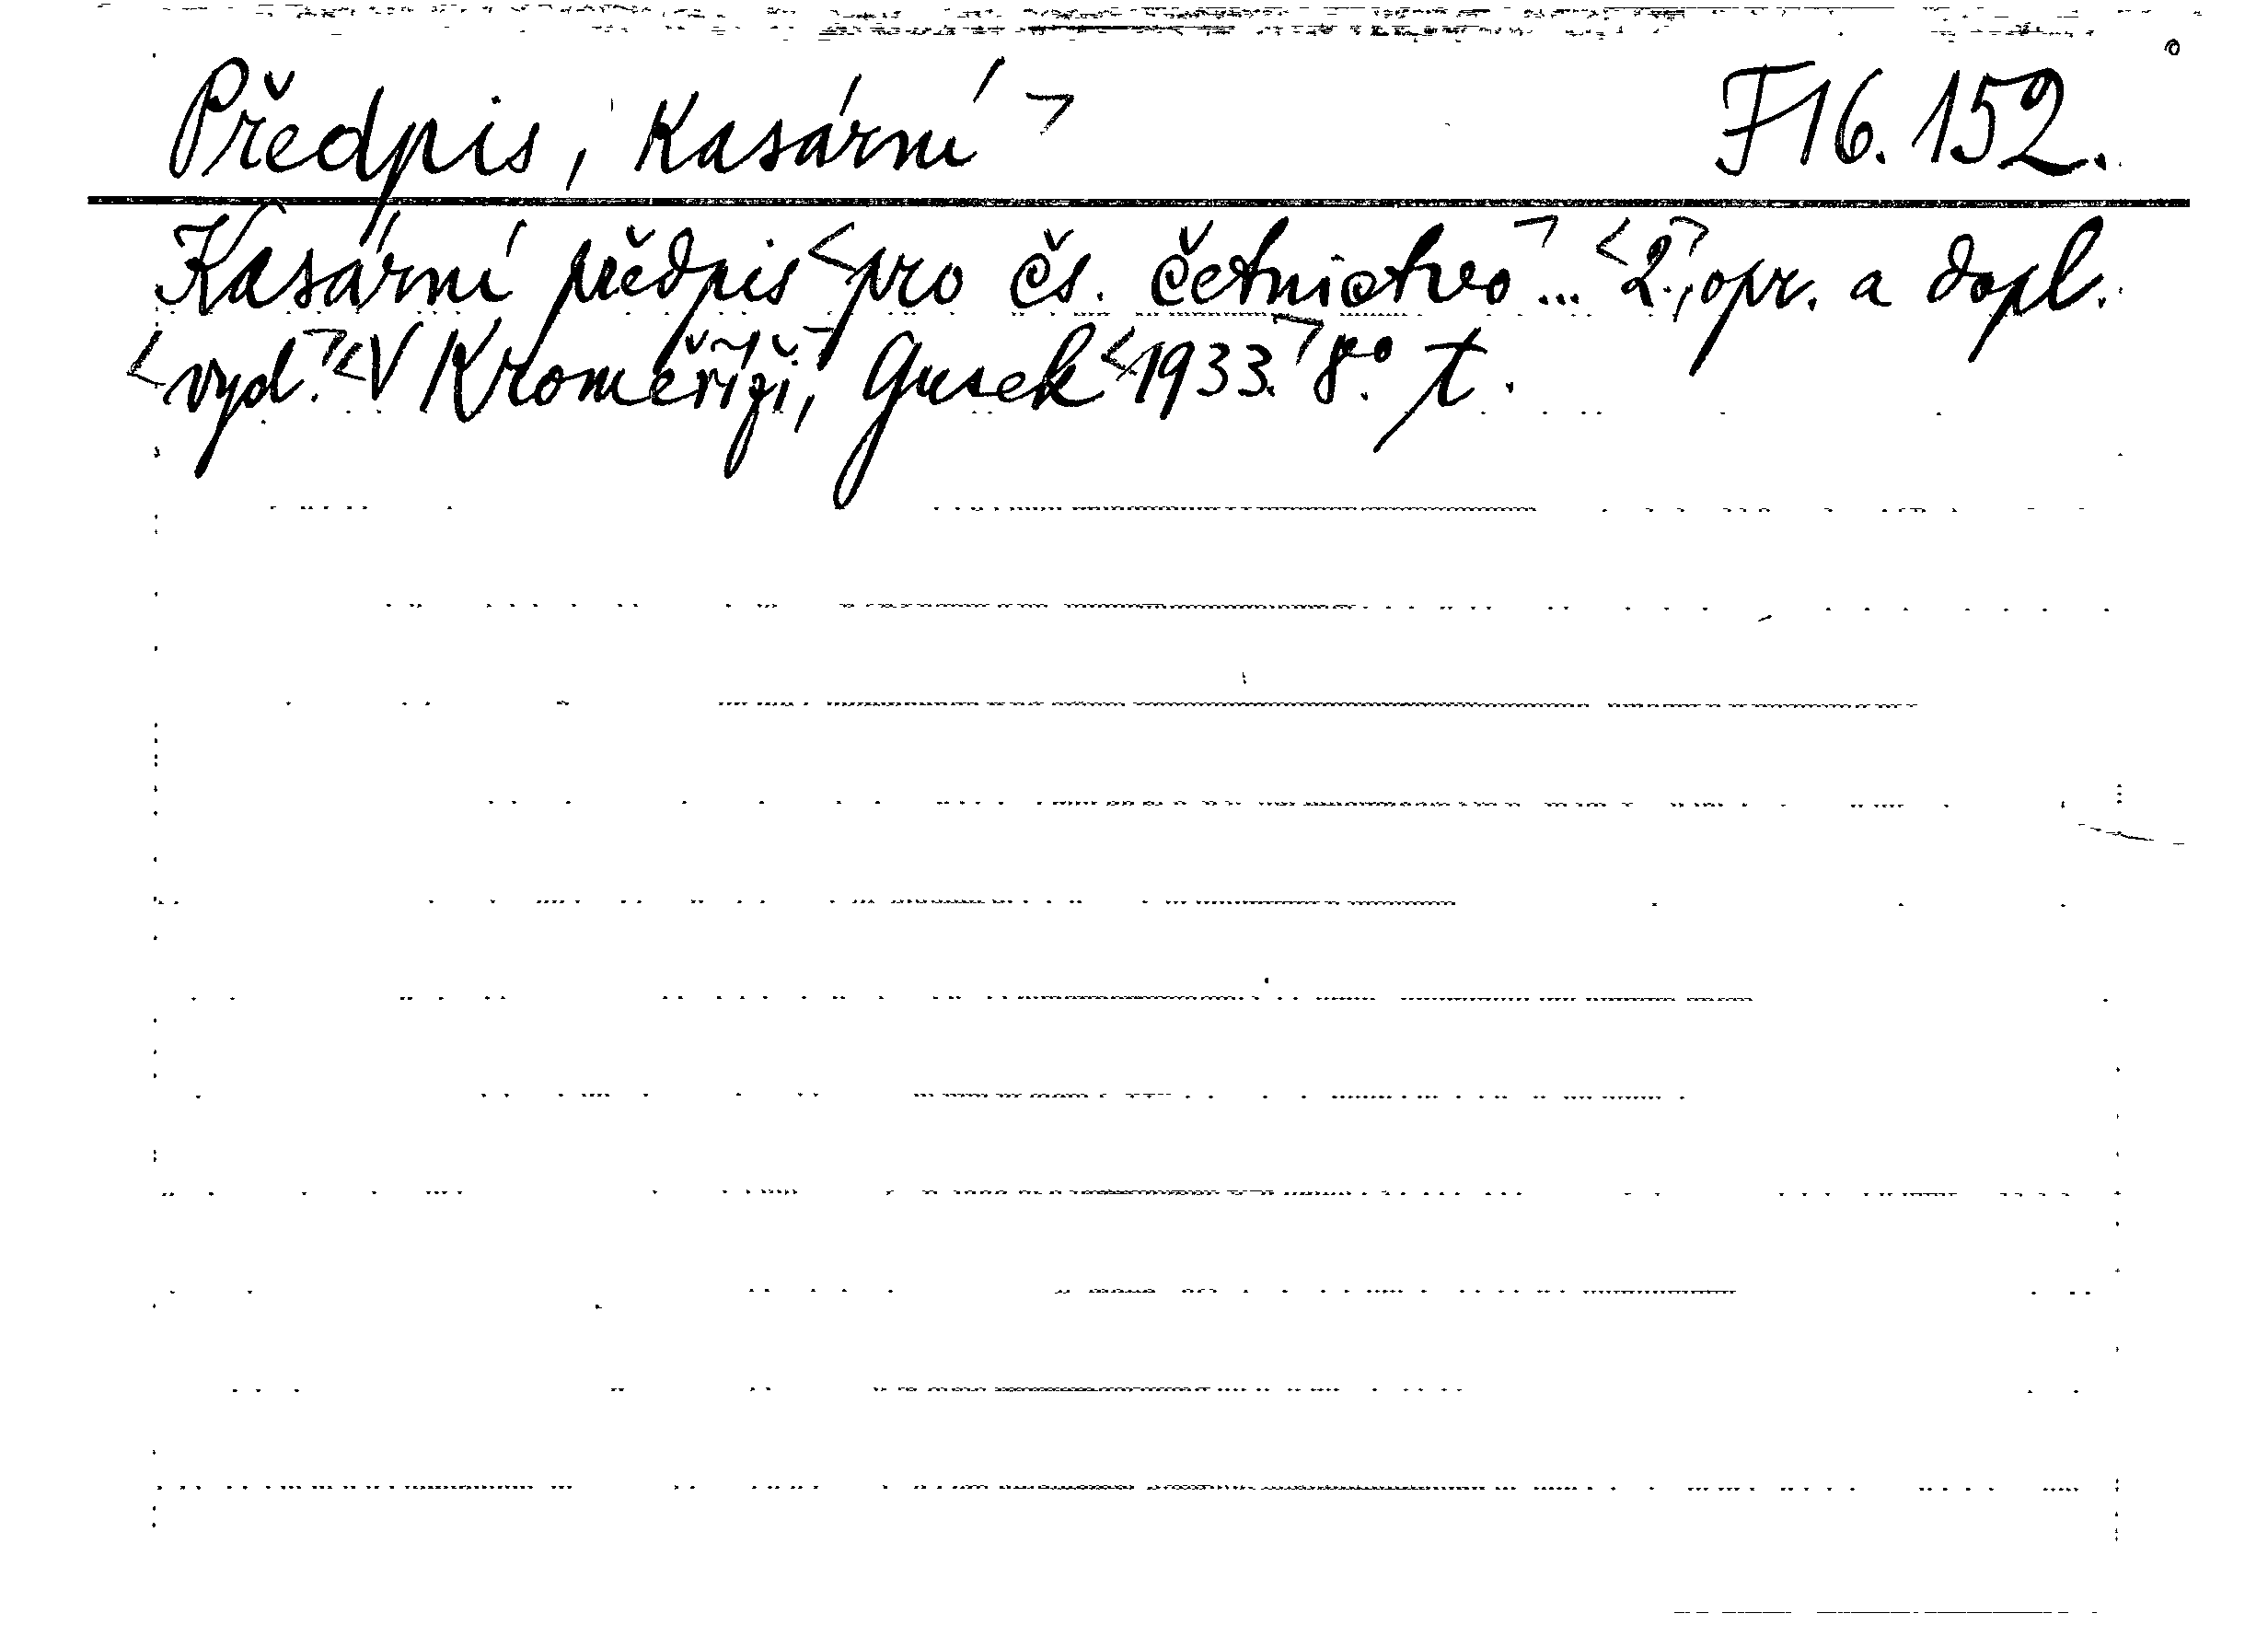 Předpis, Kasární F16.152.
Kasární předpis pro čs. četnictvo... 2., opr. a dopl.
vyd. V Kroměříži, Gusek 1933. 8° t.